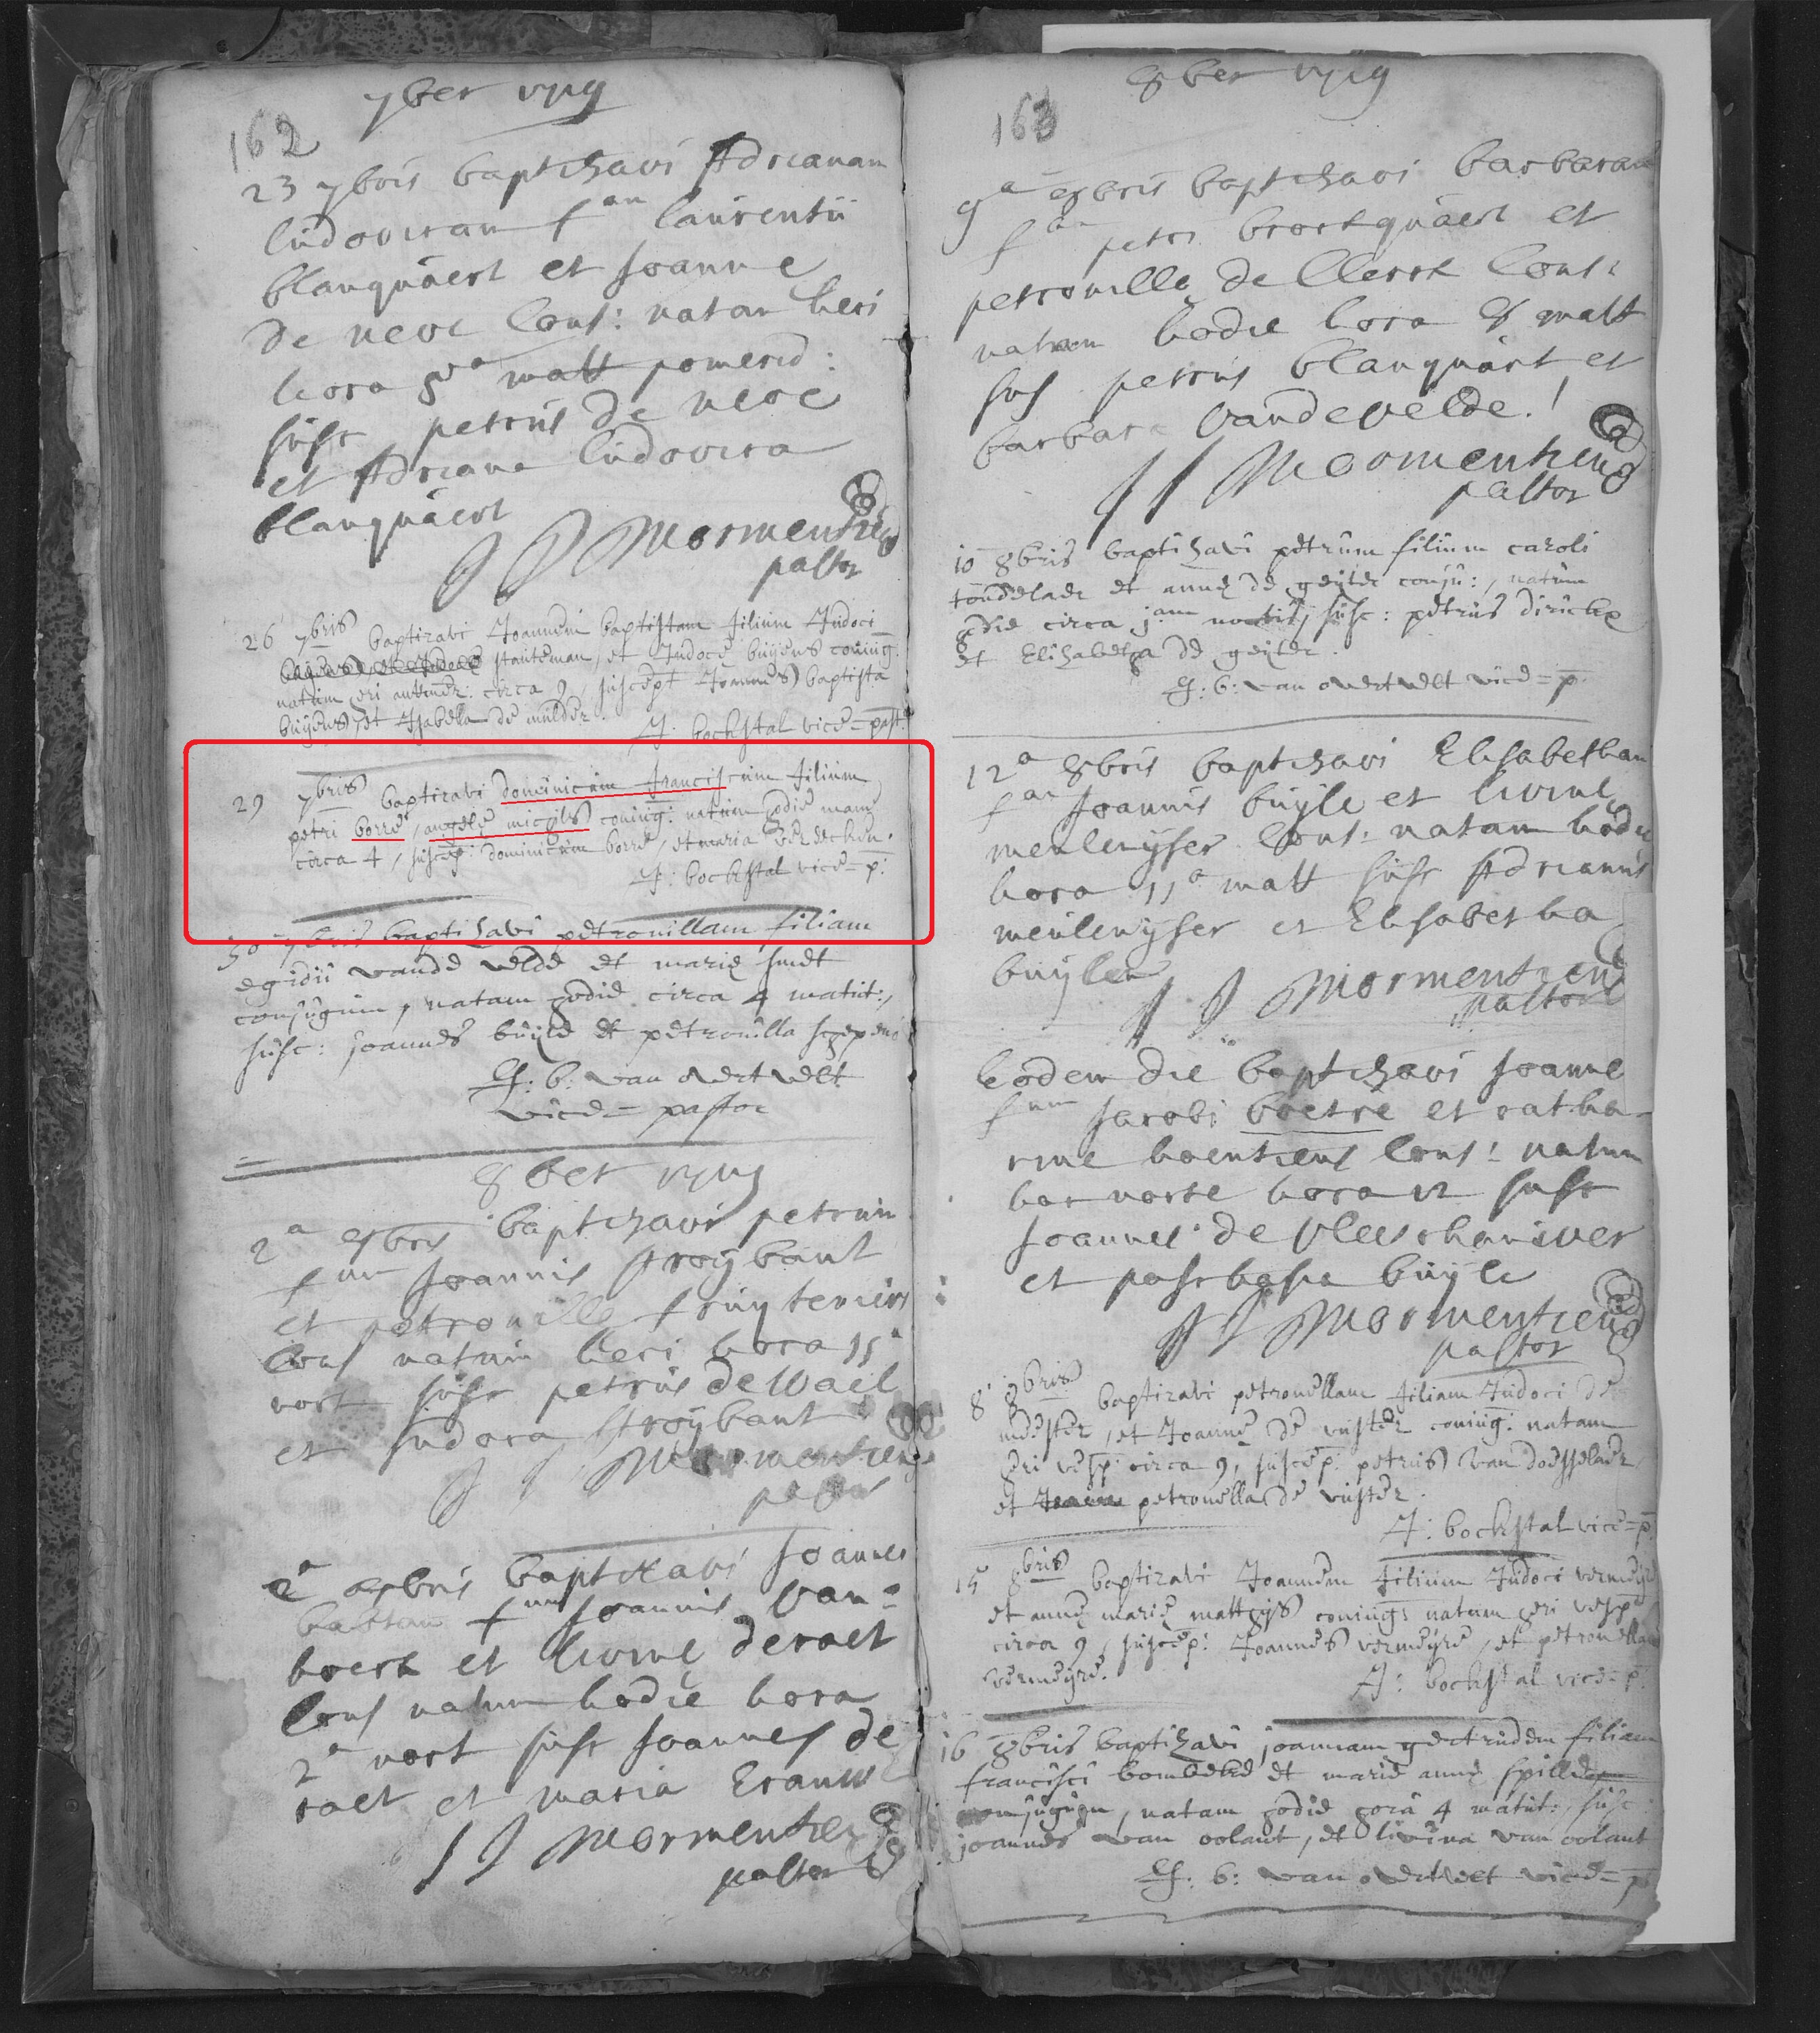 162
7ber
23 7bris baptizavi Adrianam
ludovicam f an laurentii
blanquaert et Joanne
de neve Conj: natam heri
hora 8va matt pomerid:
susc petrus de neve
et Adriana ludovica
blanquaert
J J Mormentien
pastor
26 7bris baptizavi Joannem baptistam filium Judoci
stauteman, et Judocę buijens coniug:
natum heri circa 9, suscept Joannes baptista
buijens, et Isabella de mulder.
J: bockstal vice=past:
29 7bris baptizavi dominicum franciscum filium
petri borre, angelę michils coniug: natum hodie mane
circa 4, suscep: dominicum borre, et maria
J: bockstal vice=p:
30 7bris baptizavi petronillam filiam
egidii vande velde et marię smet
conjugum, natam hodie circa 4 matut:,
susc: joannes buijle et petronilla
b: van overtvelt
vice=pastor
8ber
2a 8bris baptizavi petrum
f um Joannis stroijbant
et petronille fruijteniers
Cons natum heri hora 11a
noct susc petrus de Wael
et Judoca stroijbant
J J Mormentien
pastor
2a 8bris baptizavi Joannes
f um Joannis van=
et livine de raet
Cons natum hodie hora
2a noct susc Joannes de
raet et maria
J J Mormentien
pastor
163
8ber
9a 8bris baptizavi barbaram
f am petri brockquaert et
petronille de Clerck Cons:
natam hodie hora 8 matt
sus petrus blanquart et
barbara vande velde!
J J Mormentien
pastor
10 8bris baptizavi petrum filium caroli
tondelaer et annę de geijter conju:, natum
hodie circa jam noctis, susc: petrus dirickx
et Elizabetha de geijter.
b: van overtvelt vice=p:
12a 8bris baptizavi Elisabetham
f am Joannis buijle et livine
meulenijser Cons: natam hodie
hora 11a matt susc Adrianus
meulenijser et Elisabetha
buijle
J J Mormentien
pastor
Eodem die baptizavi Joanne
f um Jacobi boetre et catha-
rine Cons: natum
hac nocte hora 12 susc
Joannes de vleeschauwer
et buijle
J J Mormentien
pastor
8 8bris baptizavi petronellam filiam Judoci de
meester, et Joannę de vuster coniug: natam
heri vesp: circa 9, suscep: petrus van doesselaer,
et petronella de vuster.
J: bockstal vice=p:
15 8bris baptizavi Joannem filium Judoci vermeijre
et annę marię matthijs coniug: natum heri vesp:
circa 9, suscep: Joannes vermeijre, et petronella
vermeijre.
J: bockstal vice=p:
16 8bris baptizavi joannam gertrudem filiam
francisci et marię annę
conjugum, natam hodie hora 4 matut:, susc:
joannes van oolant, et livina van oolant
b: van overtvelt vice=p